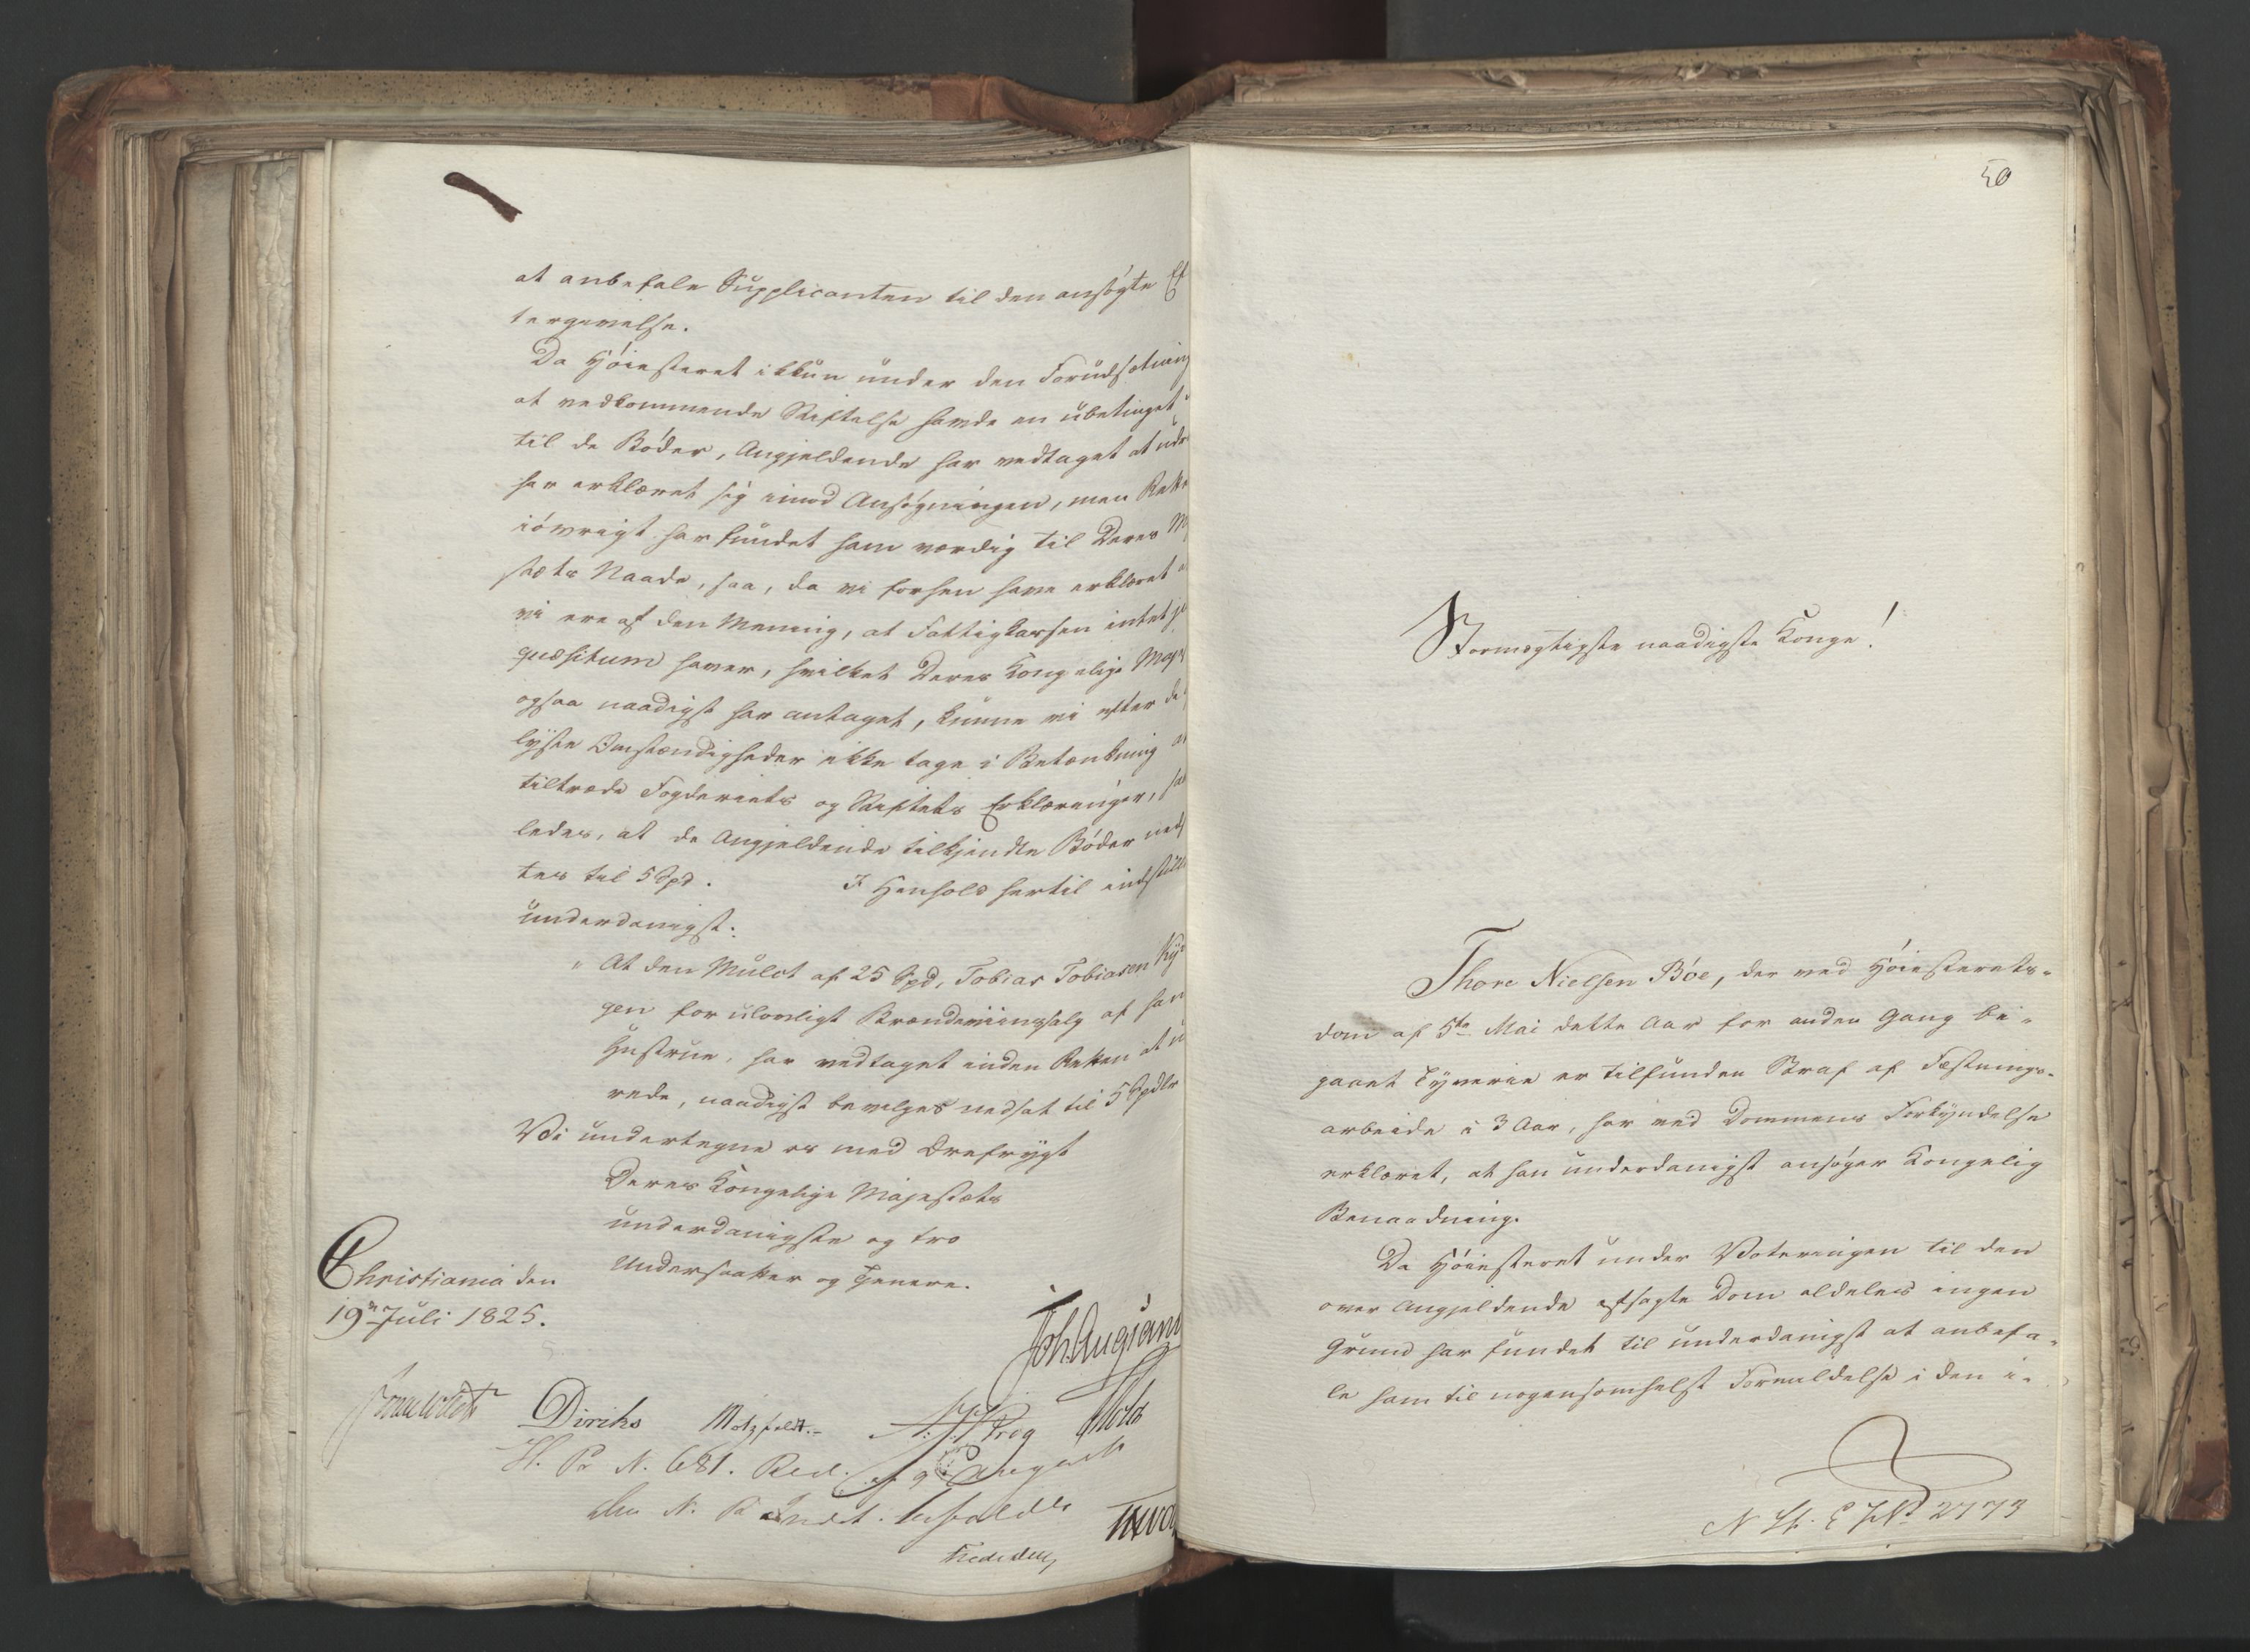 at anbefale Supplicanten til den ansøgte Ef
tergivelse.
Da Høiesteret ikkun under den Forudsætning
at vedkommende Stiftelse havde en ubetinget
til de Bøder, Angjeldende har vedtaget at ud
har erklæret sig imod Ansøgningen, men Rette
iøvrigt har fundet ham værdig til Deres M
stæts Naade, saa, da vi forhen have erklæret a
vi ere af den Mening, at Fattigkassen intet j
quæsitum haver, hvilket Deres Kongelige Maj
ogsaa naadigst har antaget, kunne vi efter de
lyste Omstændigheder ikke tage i Betænkning at
tiltræde Fogderiets og Stiftets Erklæringer, saa
ledes, at de Angjeldende tilkjendte Bøder neds
tes til 5 Spd. I Henhold hertil indstille
underdanigst:
" At den Mulct af 25 Spd, Tobias Tobiasen
gen for ulovligt Brændeviinssalg af han
Hustrue, har vedtaget inden Retten at u
rede, naadigst bevilges nedsat til 5 Spdlr
Vi undertegne os med Ærefrygt
Deres Kongelige Majestæts
underdanigste og tro
Undersaatter og Tjenere.
Christiania den
19de Juli 1825.
Diriks Motzfeldt. Krog Holst
N. 681. Res. af 9 August
Fredr Due
50
Stormægtigste naadigste Konge!
Thore Nielsen Bøe, der ved Høiesterets-
dom af 5te Mai dette Aar for anden Gang be-
gaaet Tyverie er tilfunden Straf af Fæstnings-
arbeide i 3 Aar, har ved Dommens Forkyndelse
erklæret, at han underdanigst ansøger Kongelig
Benaadning.
Da Høiesteret under Voteringen til den
over Angjeldende afsagte Dom aldeles ingen
Grund har fundet til underdanigst at anbefa-
le ham til nogensomhelst Formildelse i den i-
2773